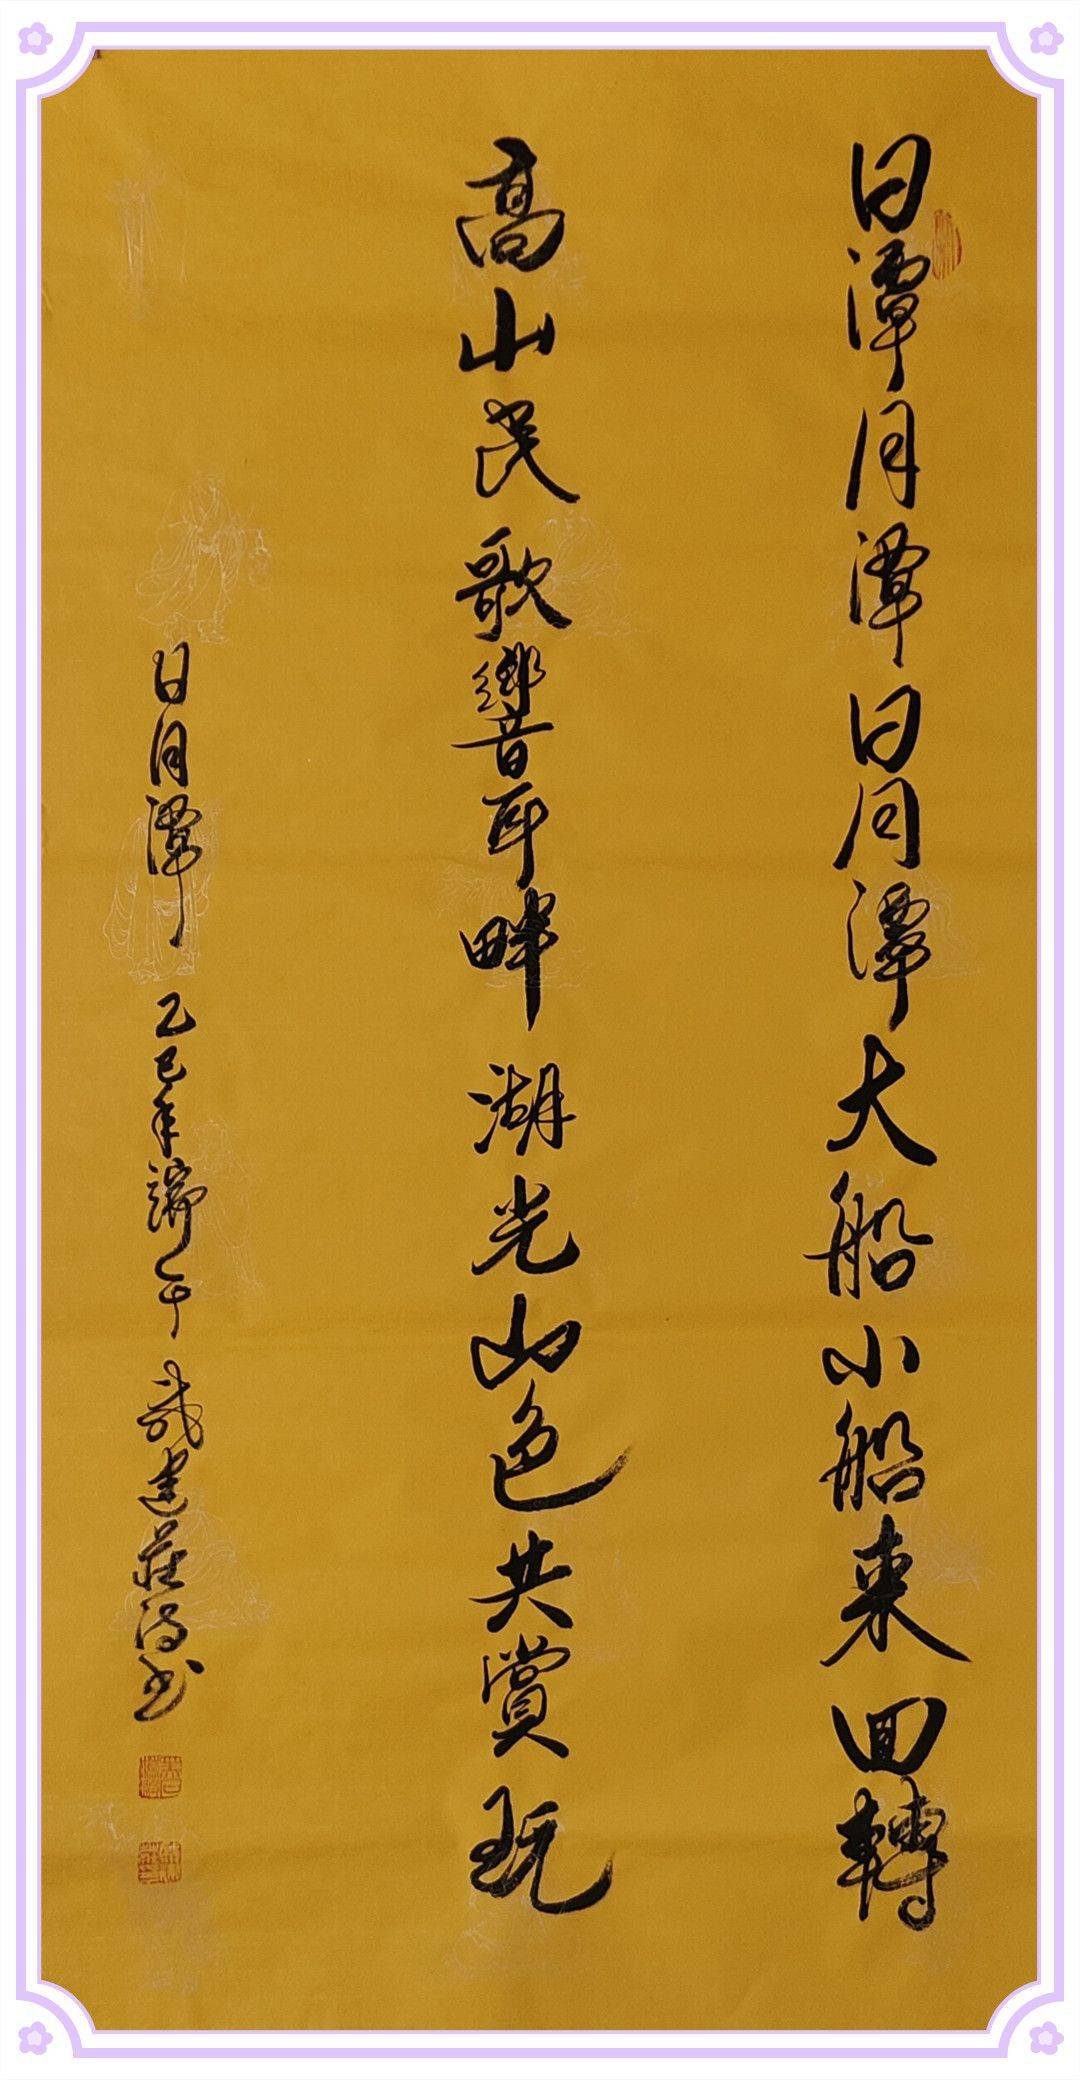 日潭月潭日月潭大船小船来回轉
高山民歌響耳畔湖光山色共賞玩
日月潭 乙巳年端午 建莊 书